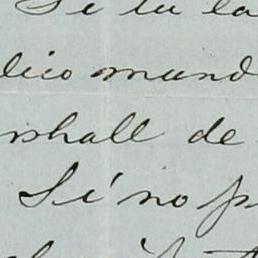 Si tu la
lico mund
rshall de
Si no p